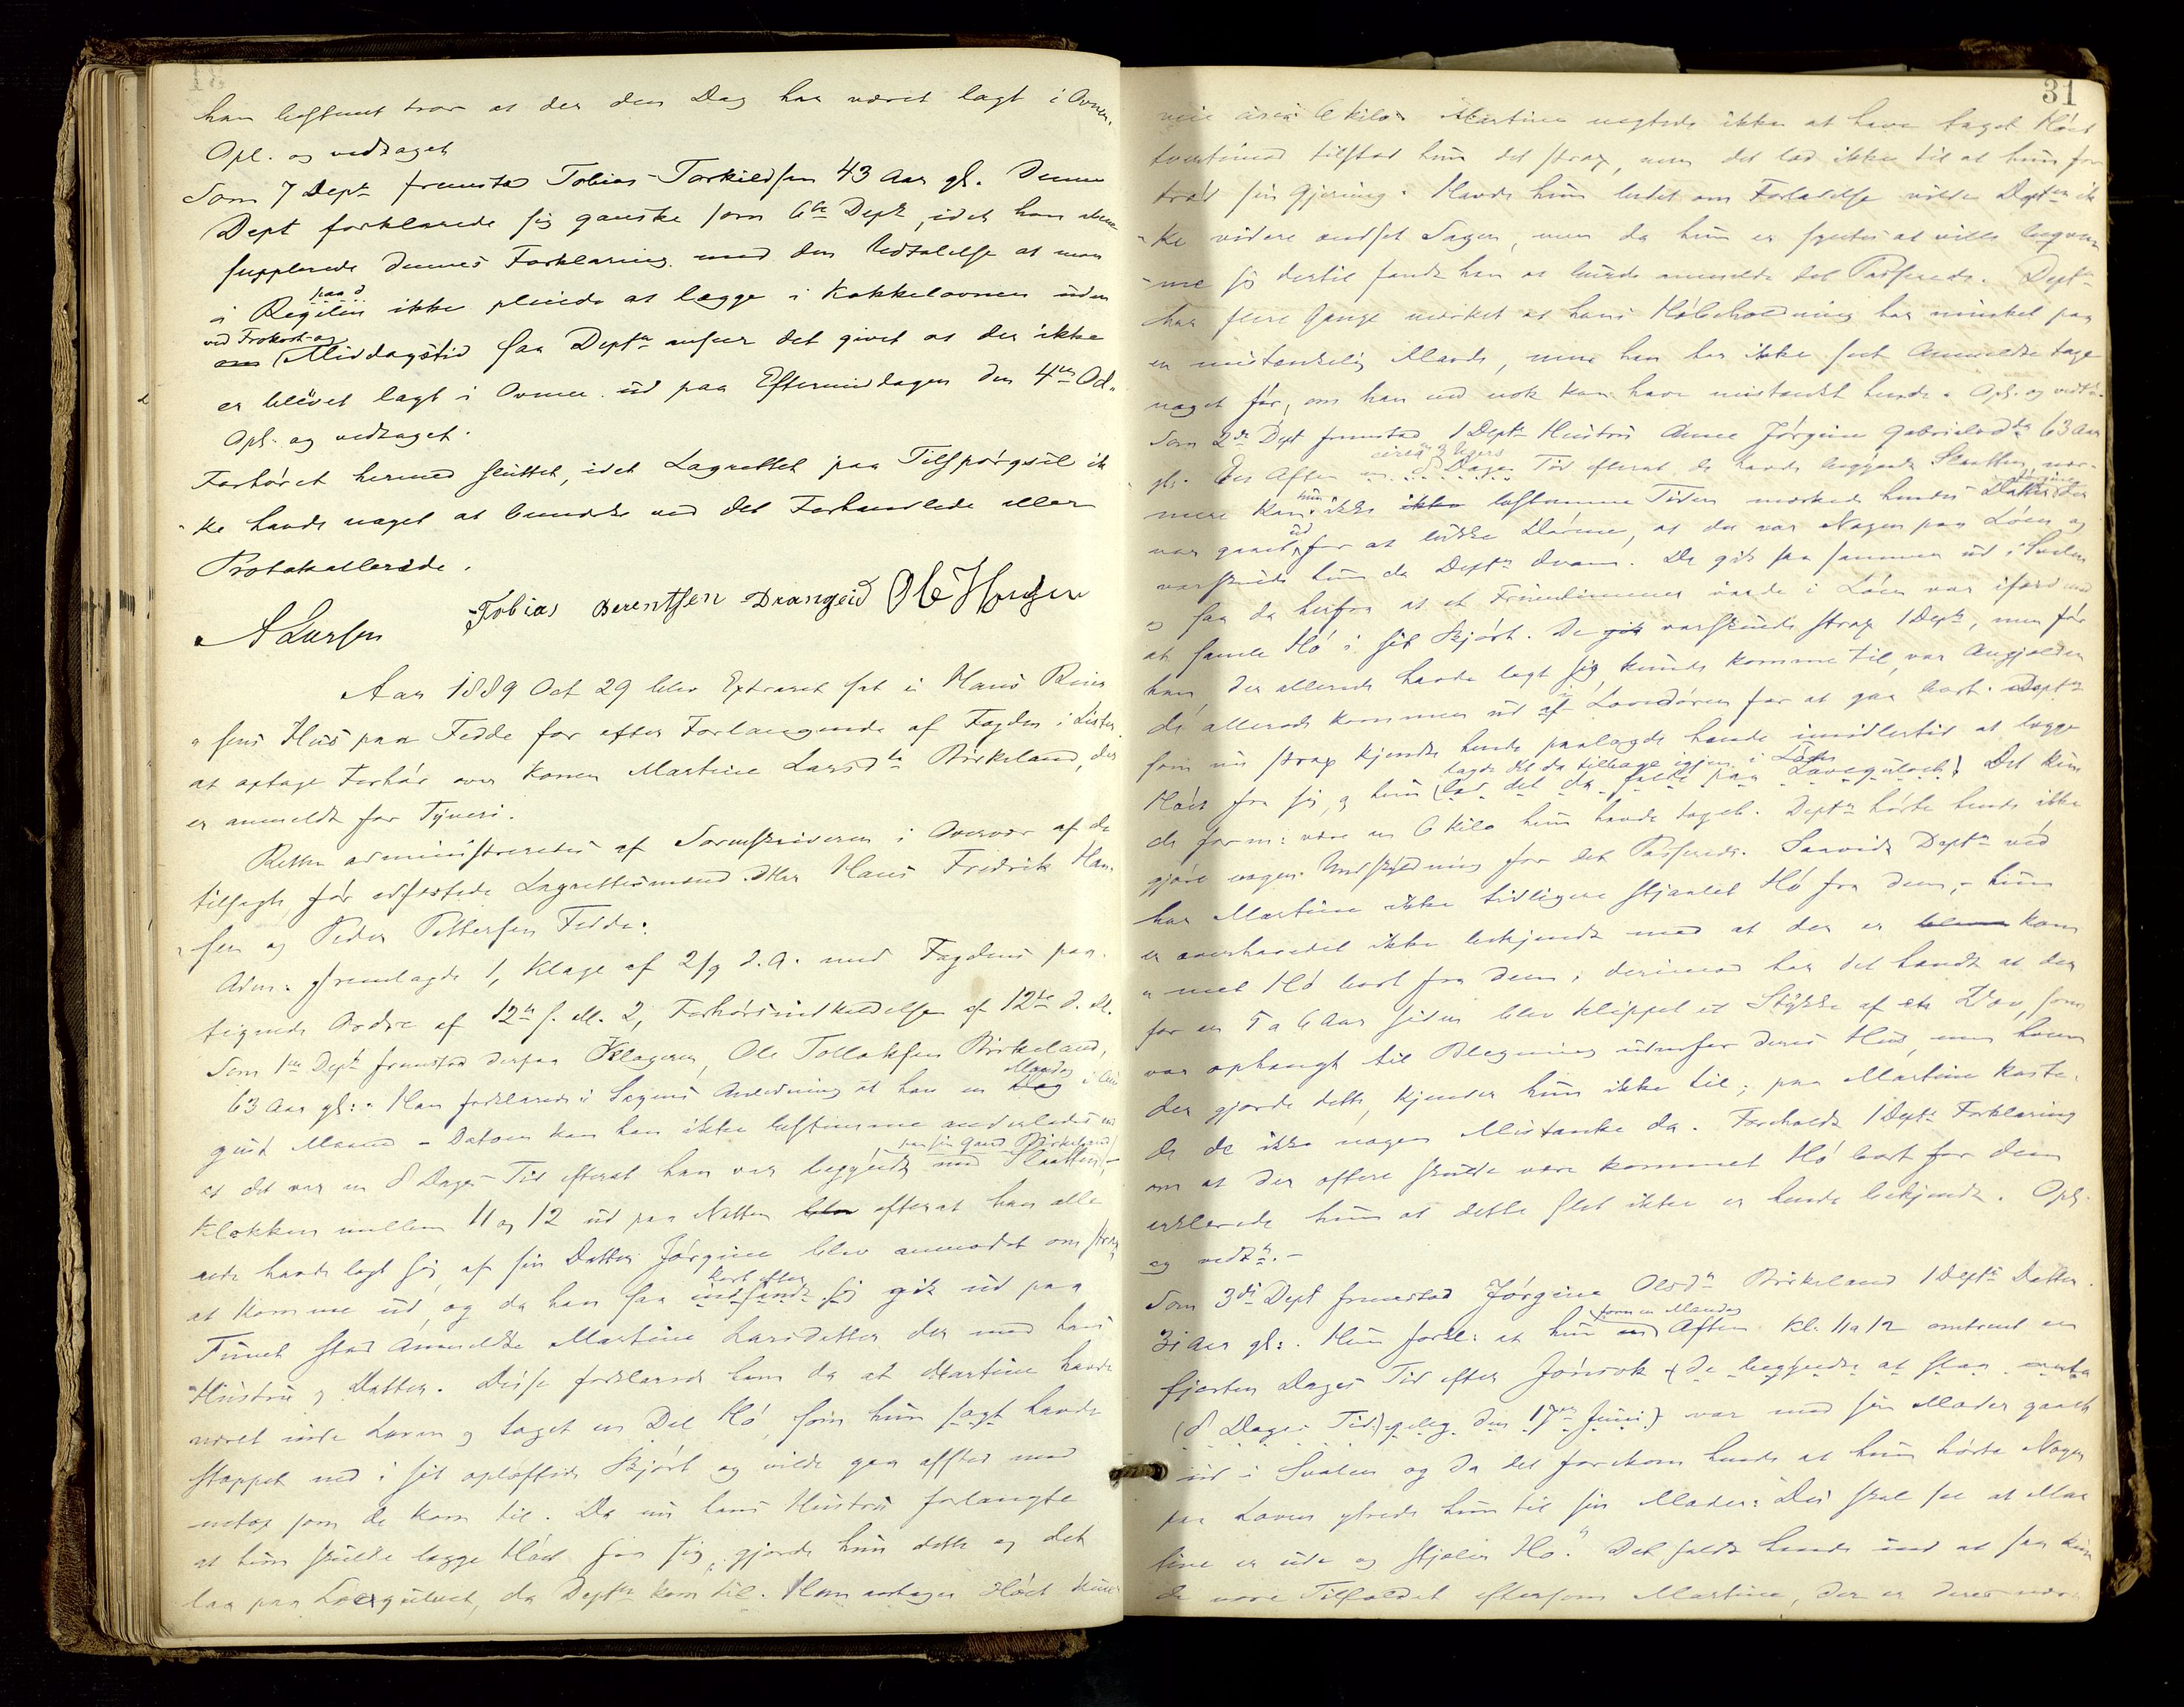 han bestemt tror at der den Dag har været lagt i Ovnen.
Opl. og vedtaget
Som 7 Dept. fremstod Tobias Torkildsen 43 Aar gl. Denne
Dept forklarede sig ganske som 6te Dept, idet han
supplerede dennes Forklaring med den Udtalelse at man
paa d
i Regelen ikke pleiede at lægge i Kakkelovnen uden
ved Frokost og
om Middagstid saa Deptn anser det givet at der ikke
er blevet lagt i Ovnen ud paa Eftermiddagen den 4de Oct.
Opl. og vedtaget.
Forhöret hermed sluttet, idet Lagrettet paa Tilspørgsel ik
ke havde noget at bemærke ved det Forhandlede eller
Protokollerede.
A Larsen Tobias Berentsen Drangeid
Aar 1889 Oct 29 blev Extraret sat i Hans Reier
sens Hus paa Fedde for efter Forlangende af Fogden i Lister
at optage Forhör over Konen Martine Larsdtr Birkeland, der
er anmeldt for Tyveri.
Retten administreredes af Sorenskriveren i Overvær af de
tilsagte för edfæstede Lagrettesmænd Hans Fredrik Han
sen og Peder Pettersen Fedde.
Adm. fremlagde 1, Klage af 2/9 d.A. med Fogdens paa
tegnede Ordre af 12te s.M. 2, Forhörsindkaldelse af 12te d.M.
Som 1ste Dept fremstod derpaa Klageren, Ole Tollaksen Birkeland,
Mandag
63 Aar gl. Han forklarede i Sagens Anledning at han en Dag i
gust Maaned – Datoen kan han ikke bestemme anderledes end
paa sin Gaard Birkeland
at det var en 8 Dages Tid efterat han var begyndt med Slaatten,
Klokken mellem 11 og 12 ud paa Natten blev efterat han alle
rede havde lagt sig, af sin Datter Jörgine blev anmodet om strax
kort efter
at komme ud, og da han saa indfandt sig gik ud paa
Tunet stod Anmeldte Martine Larsdatter der med hans
Hustru og Datter. Disse forklarede ham da at Martine havde
været inde Laven og taget en Del Hö, som hun sagt havde
stappet ned i sit oplöftede Skjört og vilde gaa afsted med
netop som de kom til. Da nu hans Hustru forlangte
at hun skulde lægge Höet fra sig, gjorde hun dette og det
laa paa Laavegulvet, da Deptn kom til. Han antager Höet kunde
31
veie circa 6 Kilo. Martine negtede ikke at have taget Höet
tvertimod tilstod hun det strax, men det lod ikke til at hun for
tröd sin Gjerning. Havde hun bedet om Forladelse vilde Deptn ik
ke videre andset Sagen, men da hun ei syntes at ville beqvem
me sig dertil fandt han at burde anmelde det Passerede. Deptn
har flere Gange mærket at hans Höbeholdning har minket paa
en mistænkelig Maade, men han har ikke seet Anmeldte tage
noget för, om han end nok kan have mistænkt hende. Opl. og vedt.
Som 2de Dept fremstod 1 Depts Hustru Anne Jörgine Gabrielsdtr 63 Aar
circa 3 Ugers
gl. En Aften en 8 Dages Tid efterat de havde begyndt Slaatten, nær
hun Jörgine
mere kan ikke ikke bestemme Tiden mærkede hendes Datter der
ud
var gaaet for at lukke Dörene, at der var Nogen paa Löen og
varskuede hun da Deptn derom. De gik saa sammen ud i Svalen
og saa da herfra at et Fruentimmer inde i Löen var ifærd med
at samle Hö i sit Skjört. De gik varskuede strax 1 Dept, men för
han, der allerede havde lagt sig, kunde komme til, var Angjælden
i
de allerede kommen ud af Lavedören for at gaa bort. Deptn
som nu strax kjendte hende paalagde hende imidlertid at lægge
lagde det da tilbage igjen i Löen
Höet fra sig, og hun (lod det da falde paa Lavegulvet). Det kun
de form: være en 6 Kilo hun havde taget. Deptn hörte hende ikke
gjöre nogen Undskyldning for det Passerede. Saavidt Deptn ved
har Martine ikke tidligere stjaalet Hö fra dem, – hun
er overhovedet ikke bekjendt med at der er blevet kom
met Hö bort fra dem; derimod har det hændt at der
for en 5 a 6 Aar siden blev klippet et Stykke af en Væv, som
var ophængt til Blegning udenfor deres Hus, men hvem
der gjorde dette, kjender hun ikke til; paa Martine kaste
de de ikke nogen Mistanke da. Foreholdt 1 Depts Forklaring
om at der oftere skulde være kommet Hö bort for dem
erklærede hun at dette slet ikke er hende bekjendt. Opl.
og vedtt. –
Som 3die Dept fremstod Jörgine Olsdtr Birkeland 1 Depts Datter
som en Mandag
31 Aar gl. Hun forkl. at hun en Aften Kl. 11 a 12 omtrent en
fjorten Dages Tid efter Jonsok (de begyndte at slaa
(8 Dages Tid) den 17de Juni) var med sin Moder gaaet
ud i Svalen og da det forekom hende at hun hörte Nogen
paa Loven ytrede hun til sin Moder: "Du skal se at Mar
tine er ude og stjæler Hö." Det faldt hende ind at saa kun
de være Tilfældet eftersom Martine, der er deres nær